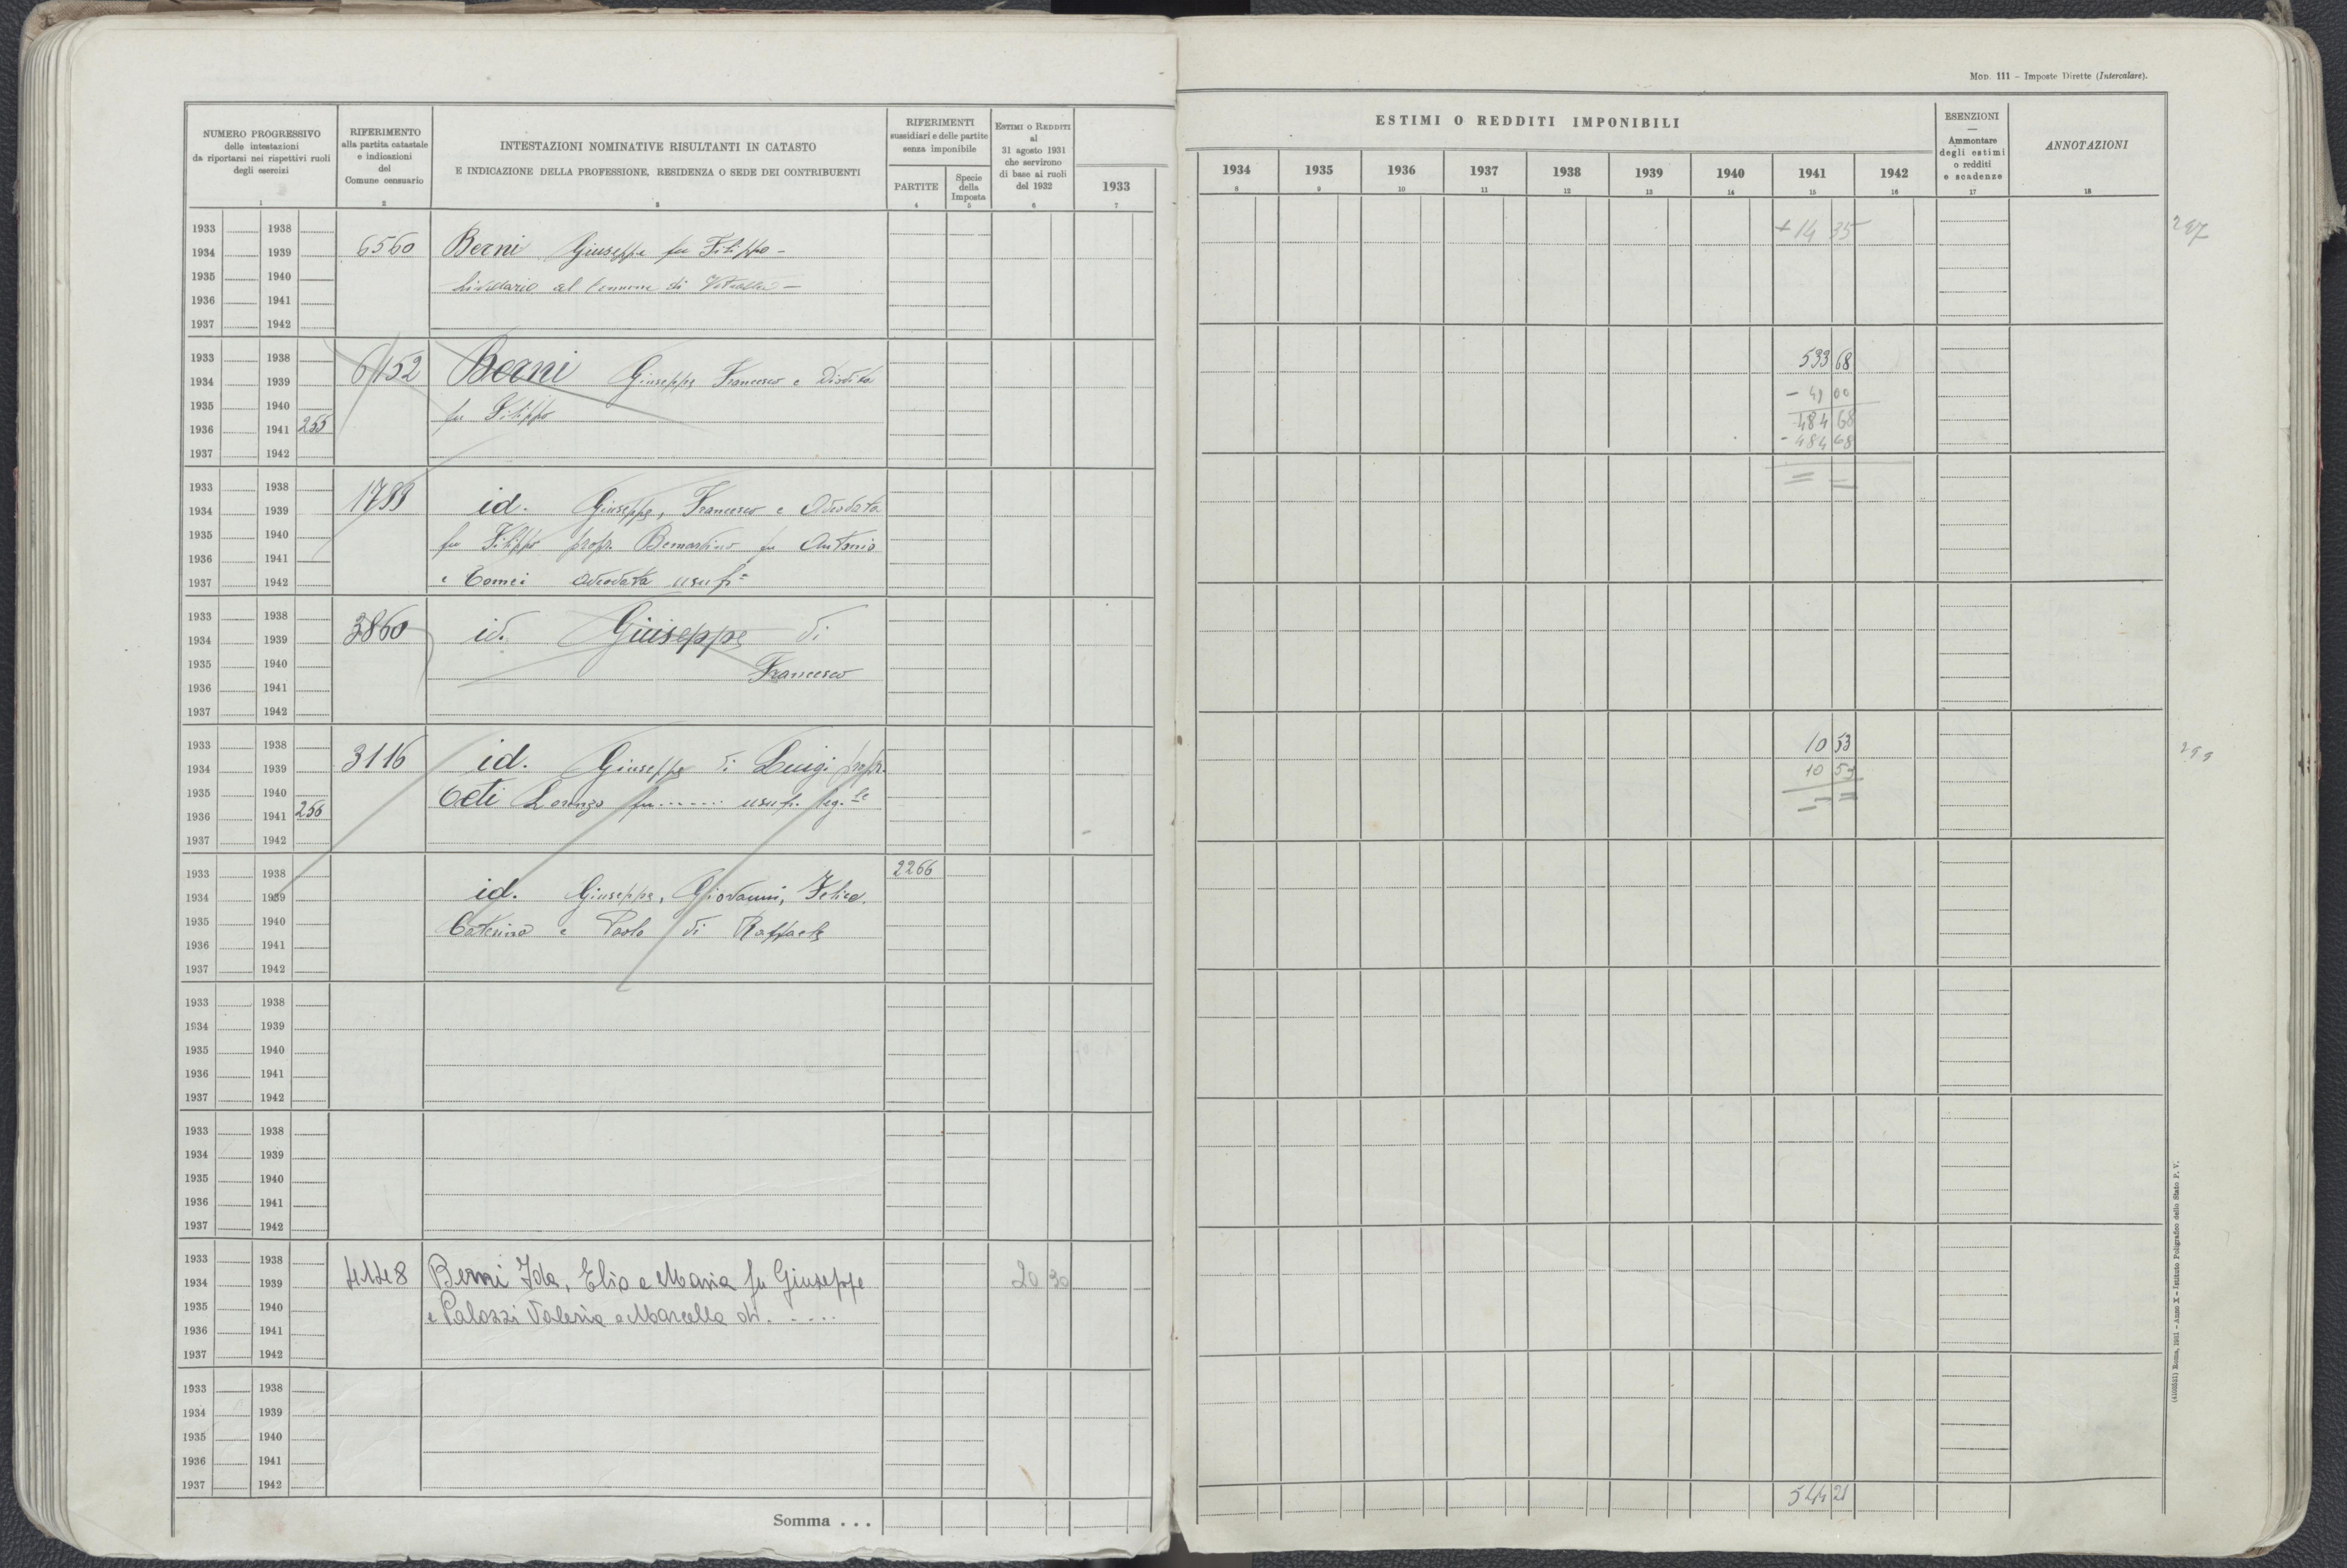 Mod. 111 – Imposte Dirette (Intercalare).
NUMERO PROGRESSIVO
delle intestazioni
da riportarsi nei rispettivi ruoli
degli esercizi
1
RIFERIMENTO
alla partita catastale
e indicazioni
del
Comune censuario
2
INTESTAZIONI NOMINATIVE RISULTANTI IN CATASTO
E INDICAZIONE DELLA PROFESSIONE, RESIDENZA O SEDE DEI CONTRIBUENTI
3
RIFERIMENTI
sussidiari e delle partite
senza imponibile
PARTITE
4
Specie
della
Imposta
5
Estimi o Redditi
al
31 agosto 1931
che servirono
di base ai ruoli
del 1932
6
1933
7
ESTIMI O REDDITI IMPONIBILI
1934 1935 1936 1937 1938 1939 1940 1941 1942
8 9 10 11 12 13 14 15 16
ESENZIONI
—
Ammontare
degli estimi
o redditi
e scadenze
17
ANNOTAZIONI
18
1933 1938
1934 1939
1935 1940
1936 1941
1937 1942
6560
Berni Giuseppe fu Filippo –
livellario al Comune di
+ 14 35
1933 1938
1934 1939
1935 1940
1936 1941 255
1937 1942
6152
Berni Giuseppe Francesco e
fu Filippo
533 68
– 49 00
484 68
– 484 68
= =
1933 1938
1934 1939
1935 1940
1936 1941
1937 1942
1799
id. Giuseppe, Francesco e Adeodata
fu Filippo propr. Bernardino fu Antonio
e Tomei Adeodata usufr.
1933 1938
1934 1939
1935 1940
1936 1941
1937 1942
3860
id. Giuseppe di
Francesco
1933 1938
1934 1939
1935 1940
1936 1941 256
1937 1942
3116
id. Giuseppe di Luigi propr.
Lorenzo fu ....... usufr. leg.le
10 53
10 53
– =
1933 1938
1934 1939
1935 1940
1936 1941
1937 1942
id. Giuseppe, Giovanni, Felice,
Caterina e Paolo di Raffaele
2266
1933 1938
1934 1939
1935 1940
1936 1941
1937 1942
1933 1938
1934 1939
1935 1940
1936 1941
1937 1942
1933 1938
1934 1939
1935 1940
1936 1941
1937 1942
4148
Berni Ida, Elio e Maria fu Giuseppe
e Palozzi Valeria e Marcella di . - - - -
20 30
1933 1938
1934 1939
1935 1940
1936 1941
1937 1942
Somma . . .
544 21
Roma, 1931 – Anno X – Istituto Poligrafico dello Stato P. V.